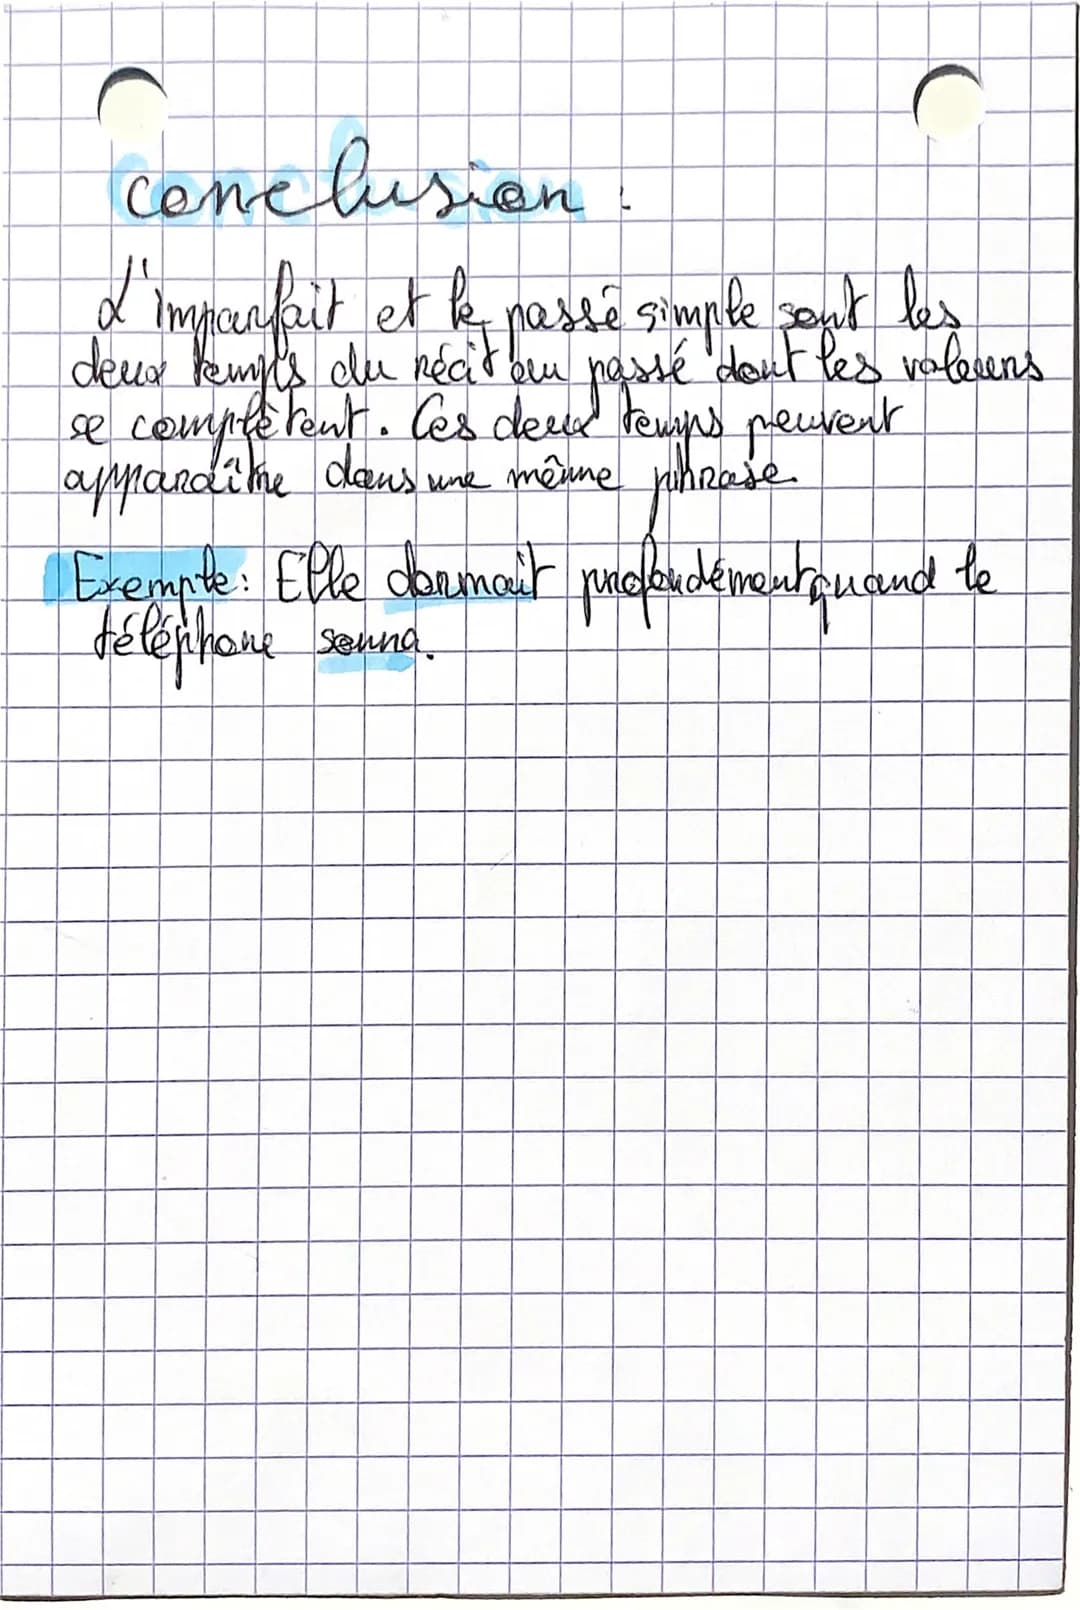 conclusion :
L'imparfait et le passé simple sont les
deux temps du récit au passé dont les valeurs
se complètent. Ces deux temps peuvent
apparaître dans une même phrase.
Exemple : Elle dormait profondément quand le
téléphone sonna.